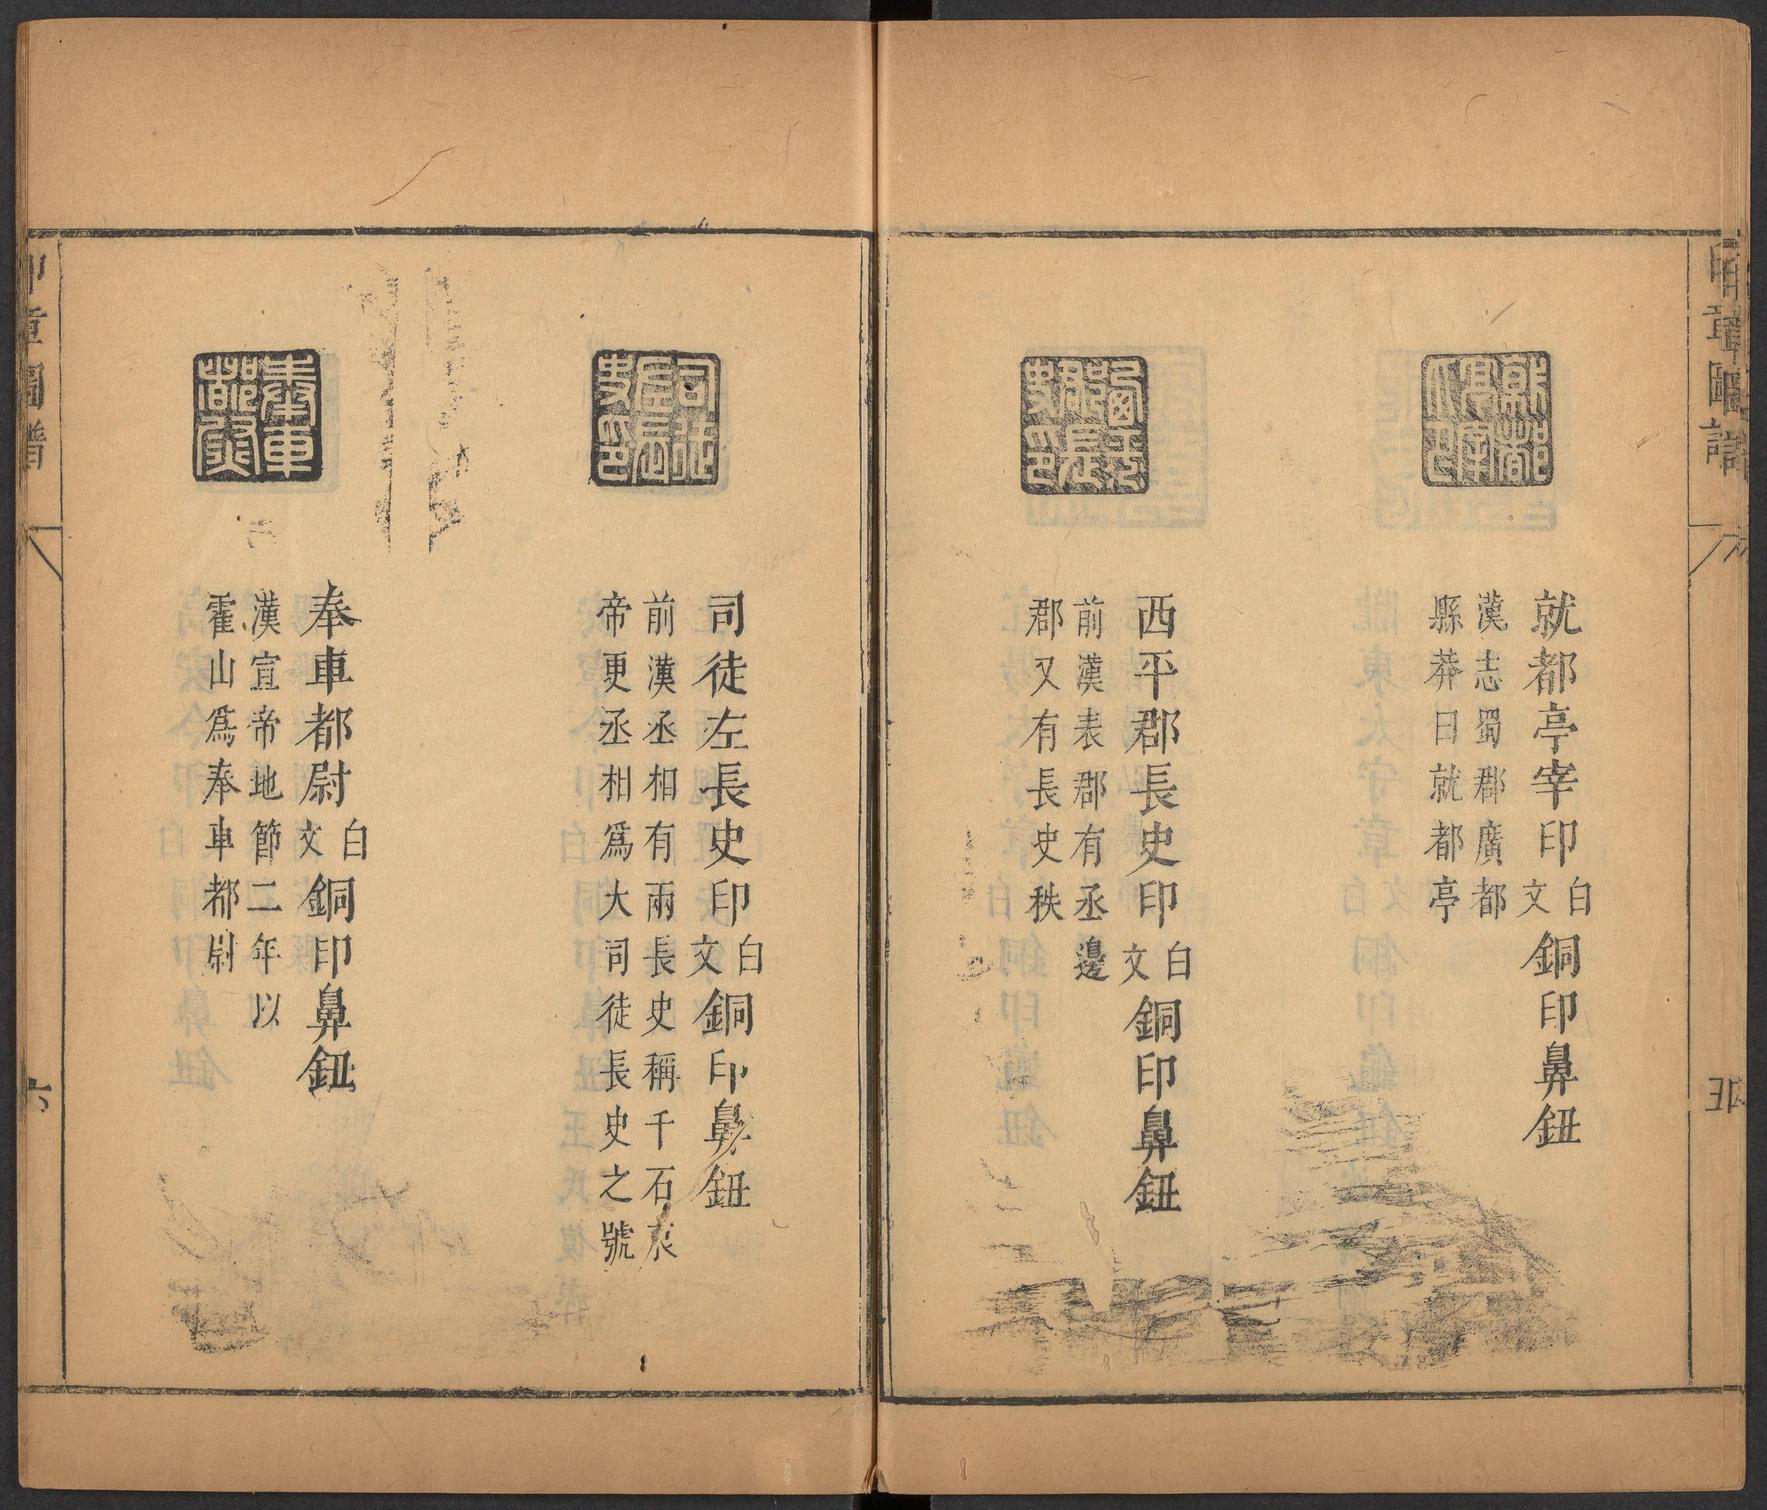 印章圖譜
五
就都亭宰印白文銅印鼻鈕
漢志蜀郡廣都
縣莽曰就都亭
西平郡長史印白文銅印鼻鈕
前漢表郡有丞邊
郡又有長史秩
司徒左長史印白文銅印鼻鈕
前漢丞相有兩長史稱千石哀
帝更丞相爲大司徒長史之號
奉車都尉白文銅印鼻鈕
漢宣帝地節二年以
霍山爲奉車都尉
印章圖譜
六
就都亭宰印
西平郡長史印
司徒左長史印
奉車都尉